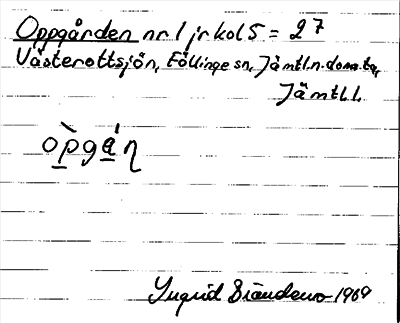 Oppgården nr 1 jr kol 5 = 27
Västerottsjön, Föllinge sn, Jämtl.n. doms.
Jämtl l.
òpgán
Ingrid 1969